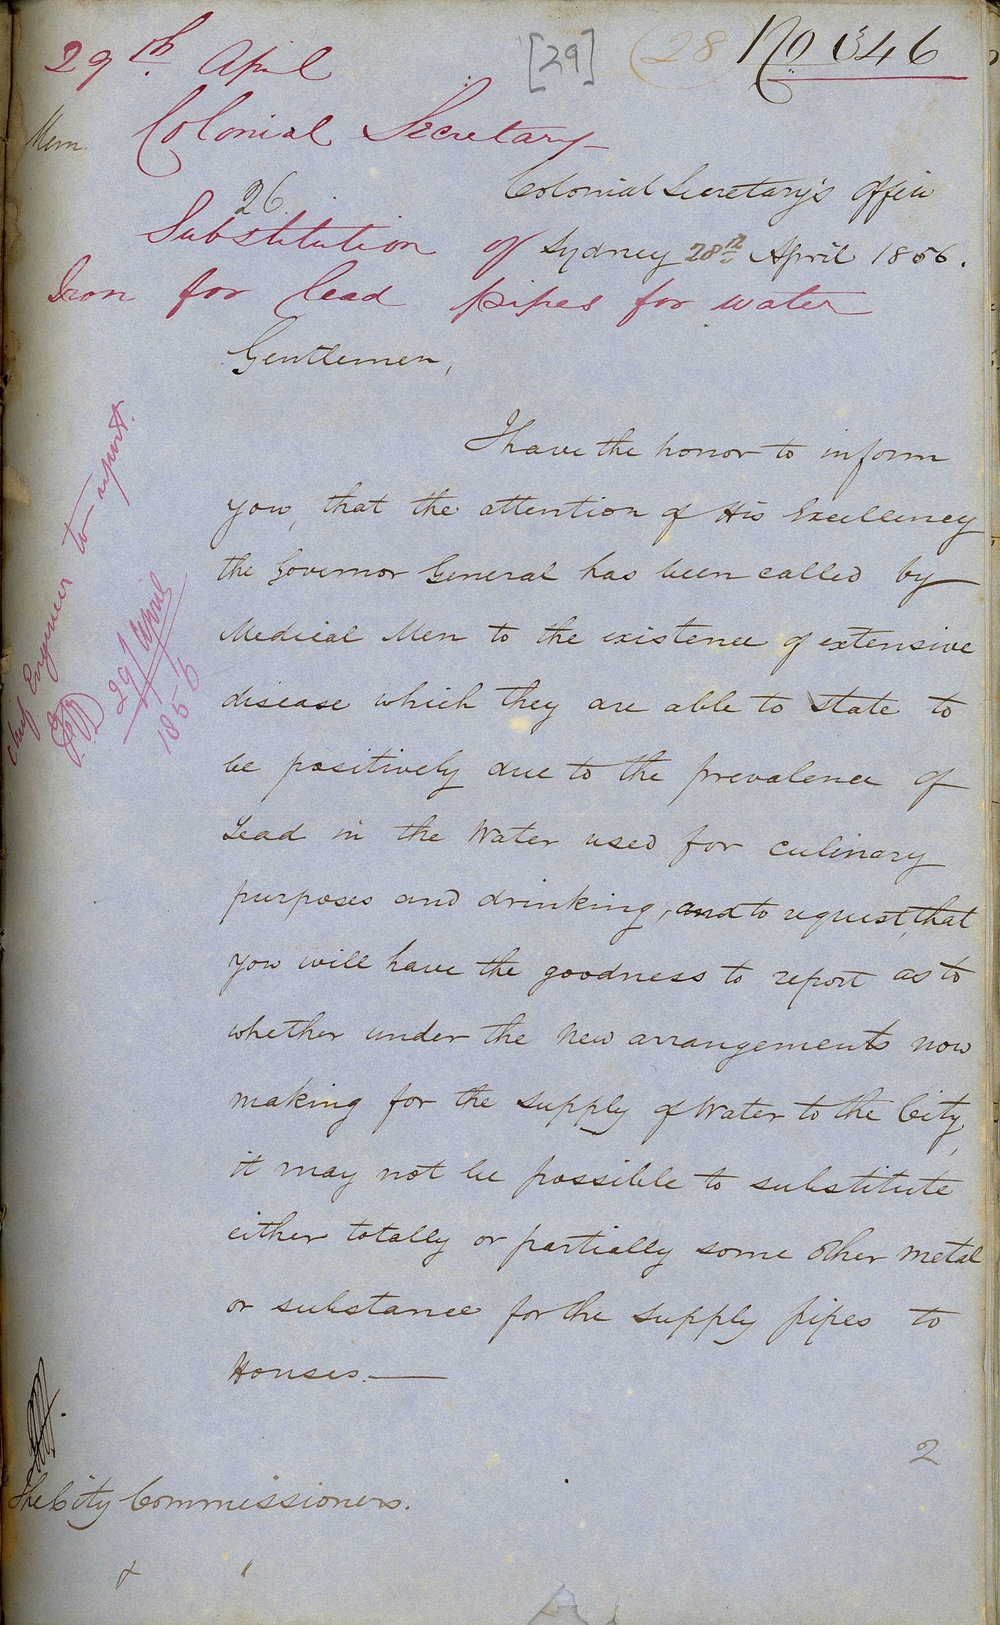 29th April
[29]
(28)
No 346
Mem.
Colonial Secretary
26
Colonial Secretary's Office
Substitution of
Sydney 28th April 1856.
Iron for lead pipes for water
Gentlemen,
I have the honor to inform
you, that the attention of His Excellency
the Governor General has been called by
Medical Men to the existence of extensive
disease which they are able to state to
be positively due to the prevalence of
Lead in the Water used for culinary
purposes and drinking, and to request, that
you will have the goodness to report as to
whether under the New arrangements now
making for the supply of Water to the City,
it may not be possible to substitute
either totally or partially some other metal
or substance for the supply pipes to
Houses.—
Chief Engineer to report.
29/April
1856
2
The City Commissioners.